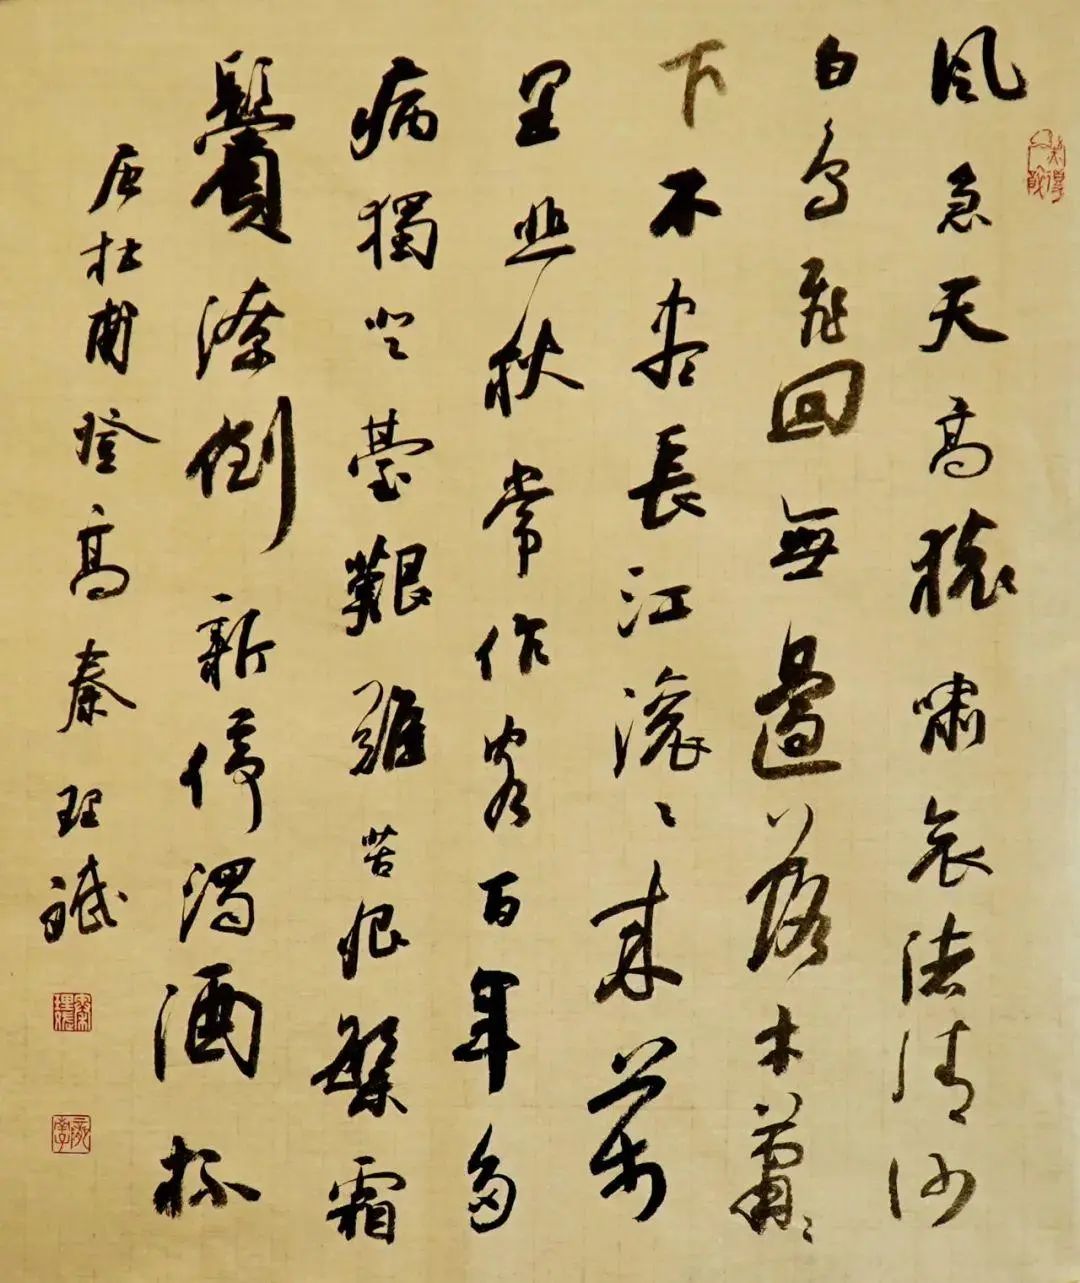 風急天高猿嘯哀渚清沙
白鳥飛回無邊落木蕭〻
下不盡長江滾〻來萬
里悲秋常作客百年多
病獨登臺艱難苦恨繁霜
鬢潦倒新停濁酒杯
唐杜甫登高秦理